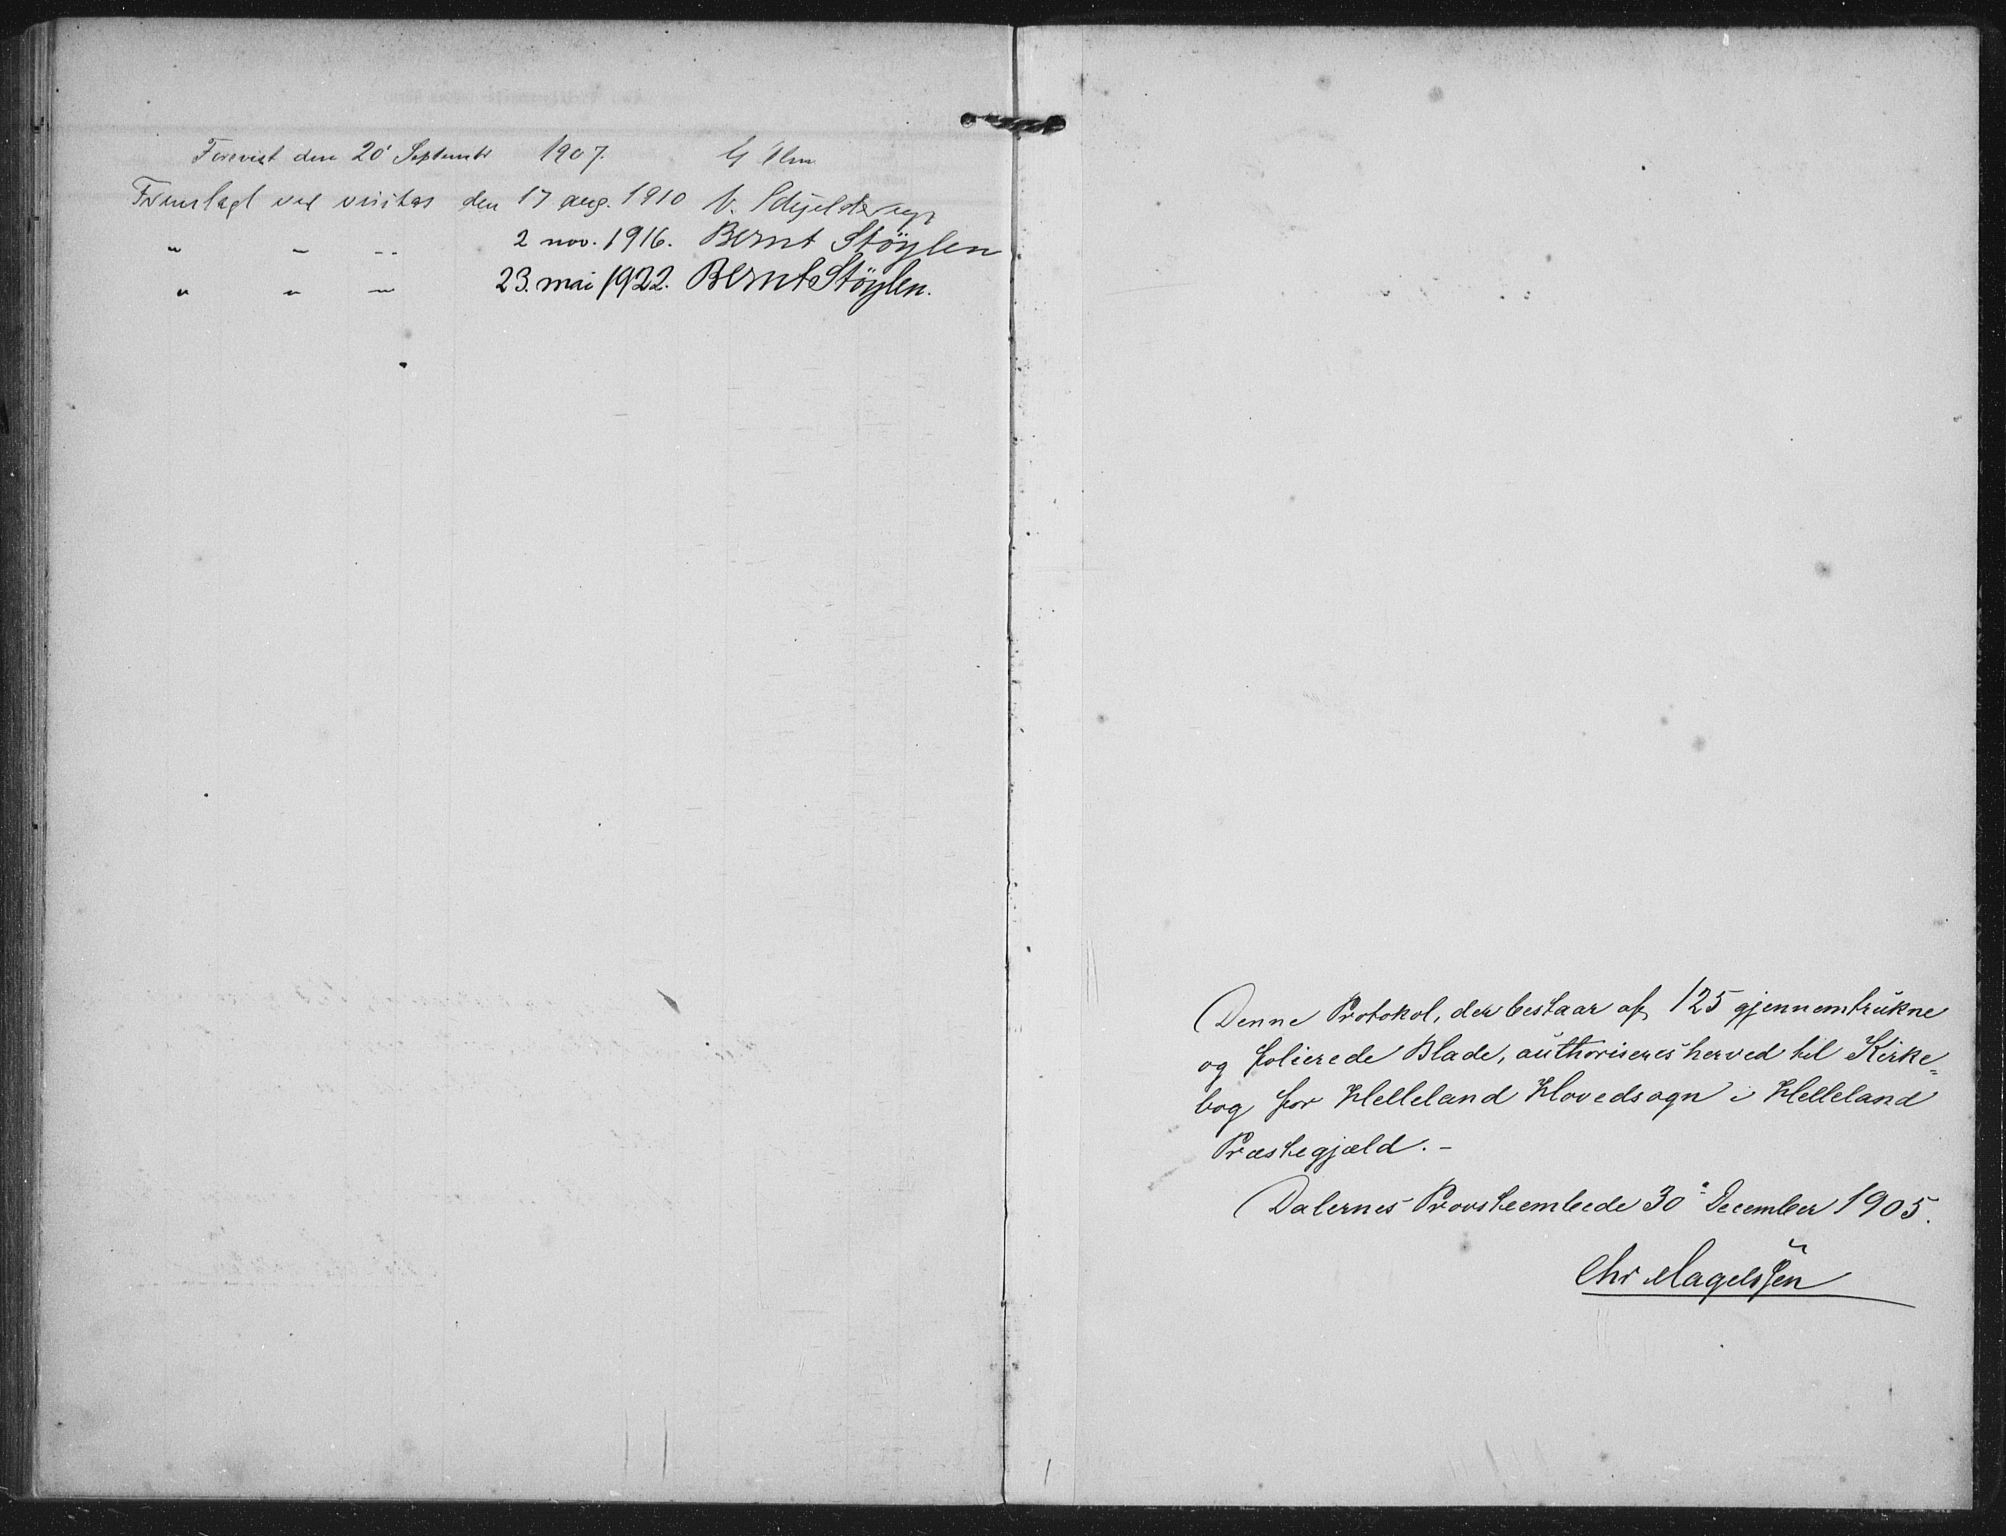 Forevist den 20' Septembr 1907.
Fremlagt ved visitas den 17 aug. 1910 V. Skjelderup
" " " 2 nov. 1916. Bernt Støylen
" " " 23. mai 1922. Bernt Støylen.
Denne Protokol, der bestaar af 125 gjennemtrukne
og folierede Blade, authoriseres herved til Kirke=
bog for Helleland Hovedsogn i Helleland
Præstegjæld. -
Dalernes Provsteembede 30' December 1905.
Chr Magelssen